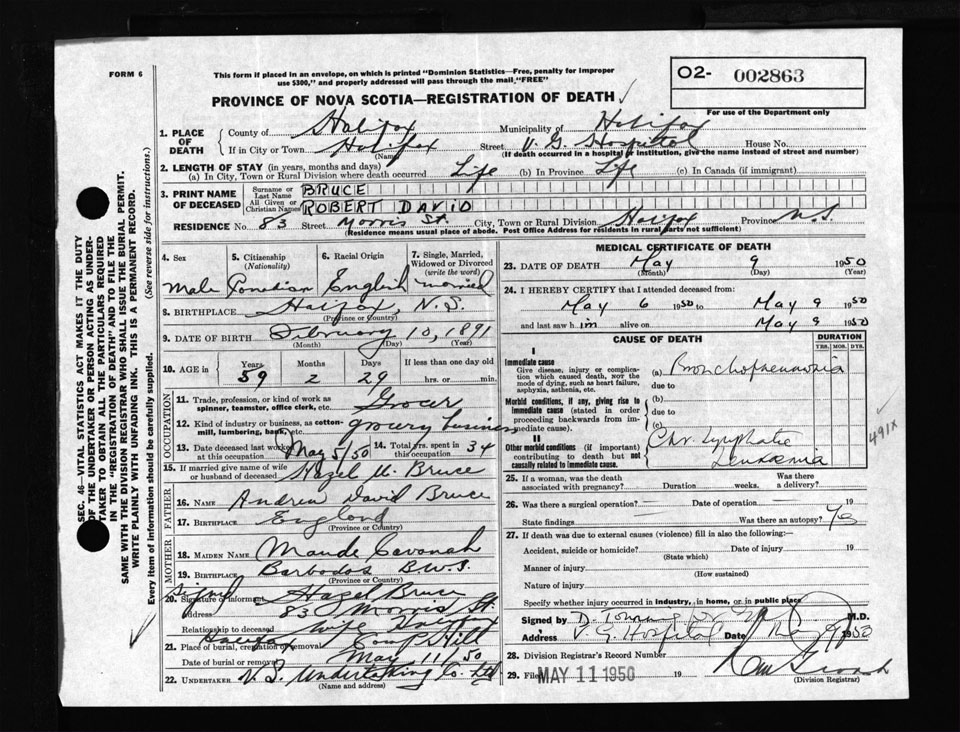 FORM 6
This form if placed in an envelope, on which is printed "Dominion Statistics—Free, penalty for improper
use $300," and properly addressed will pass through the mail "FREE"
O2- 002863
For use of the Department only
PROVINCE OF NOVA SCOTIA—REGISTRATION OF DEATH
1. PLACE OF DEATH
County of Halifax Municipality of Halifax
If in City or Town Halifax Street V. G. Hospital House No.
(Name) (If death occurred in a hospital or institution, give the name instead of street and number)
2. LENGTH OF STAY (in years, months and days)
(a) In City, Town or Rural Division where death occurred Life (b) In Province Life (c) In Canada (if immigrant)
3. PRINT NAME OF DECEASED
Surname or Last Name BRUCE
All Given or Christian Names ROBERT DAVID
RESIDENCE No. 83 Street Morris St. City, Town or Rural Division Halifax Province N.S.
(Residence means usual place of abode. Post Office Address for residents in rural parts not sufficient)
4. Sex
Male
5. Citizenship
(Nationality)
Canadian
6. Racial Origin
English
7. Single, Married,
Widowed or Divorced
(write the word)
married
8. BIRTHPLACE Halifax, N.S.
(Province or Country)
9. DATE OF BIRTH February 10, 1891
(Month) (Day) (Year)
10. AGE in Years Months Days If less than one day old
59 2 29 hrs. or min.
OCCUPATION
11. Trade, profession, or kind of work as
spinner, teamster, office clerk, etc. Grocer
12. Kind of industry or business, as cotton-
mill, lumbering, bank, etc. grocery business
13. Date deceased last worked at this occupation May 5/50 14. Total yrs. spent in 34
15. If married give name of wife
or husband of deceased Hazel M. Bruce
FATHER
16. NAME Andrew David Bruce
17. BIRTHPLACE England
(Province or Country)
MOTHER
18. MAIDEN NAME Maude Cavanah
19. BIRTHPLACE Barbados B.W.I.
(Province or Country)
signed
20. Signature of informant Hazel Bruce
Address 83 Morris St.
Relationship to deceased wife Halifax
21. Place of burial, cremation or removal Halifax Camp Hill
Date of burial or removal May 11/50
22. UNDERTAKER N.S. Undertaking Co. Ltd
(Name and address)
MEDICAL CERTIFICATE OF DEATH
23. DATE OF DEATH May 9 1950
(Month) (Day) (Year)
24. I HEREBY CERTIFY that I attended deceased from:
May 6 1950 to May 9 1950
and last saw him alive on May 9 1950
CAUSE OF DEATH
DURATION
YRS. MOS. DYS.
I
Immediate cause
Give disease, injury or complica-
tion which caused death, not the
mode of dying, such as heart failure,
asphyxia, asthenia, etc.
(a) Bronchopneumonia
due to
Morbid conditions, if any, giving rise to
immediate cause (stated in order
proceeding backwards from im-
mediate cause).
(b)
due to
(c)
II
Other morbid conditions (if important)
contributing to death but not
causally related to immediate cause.
Chr. Lymphatic
Leukemia
491X
25. If a woman, was the death
associated with pregnancy? Duration weeks. Was there
a delivery?
26. Was there a surgical operation? Date of operation 19
State findings Was there an autopsy? Yes
27. If death was due to external causes (violence) fill in also the following:—
Accident, suicide or homicide? Date of injury 19
(State which)
Manner of injury
(How sustained)
Nature of injury
Specify whether injury occurred in industry, in home, or in public place.
Signed by D. M.D.
Address V. G. Hospital Date May 9 1950
28. Division Registrar's Record Number
29. Filed MAY 11 1950 19
(Division Registrar)
SEC. 46—VITAL STATISTICS ACT MAKES IT THE DUTY
OF THE UNDERTAKER OR PERSON ACTING AS UNDER-
TAKER TO OBTAIN ALL THE PARTICULARS REQUIRED
IN THE "REGISTRATION OF DEATH" AND TO FILE THE
SAME WITH THE DIVISION REGISTRAR WHO SHALL ISSUE THE BURIAL PERMIT.
WRITE PLAINLY WITH UNFADING INK. THIS IS A PERMANENT RECORD.
Every item of information should be carefully supplied. (See reverse side for instructions.)